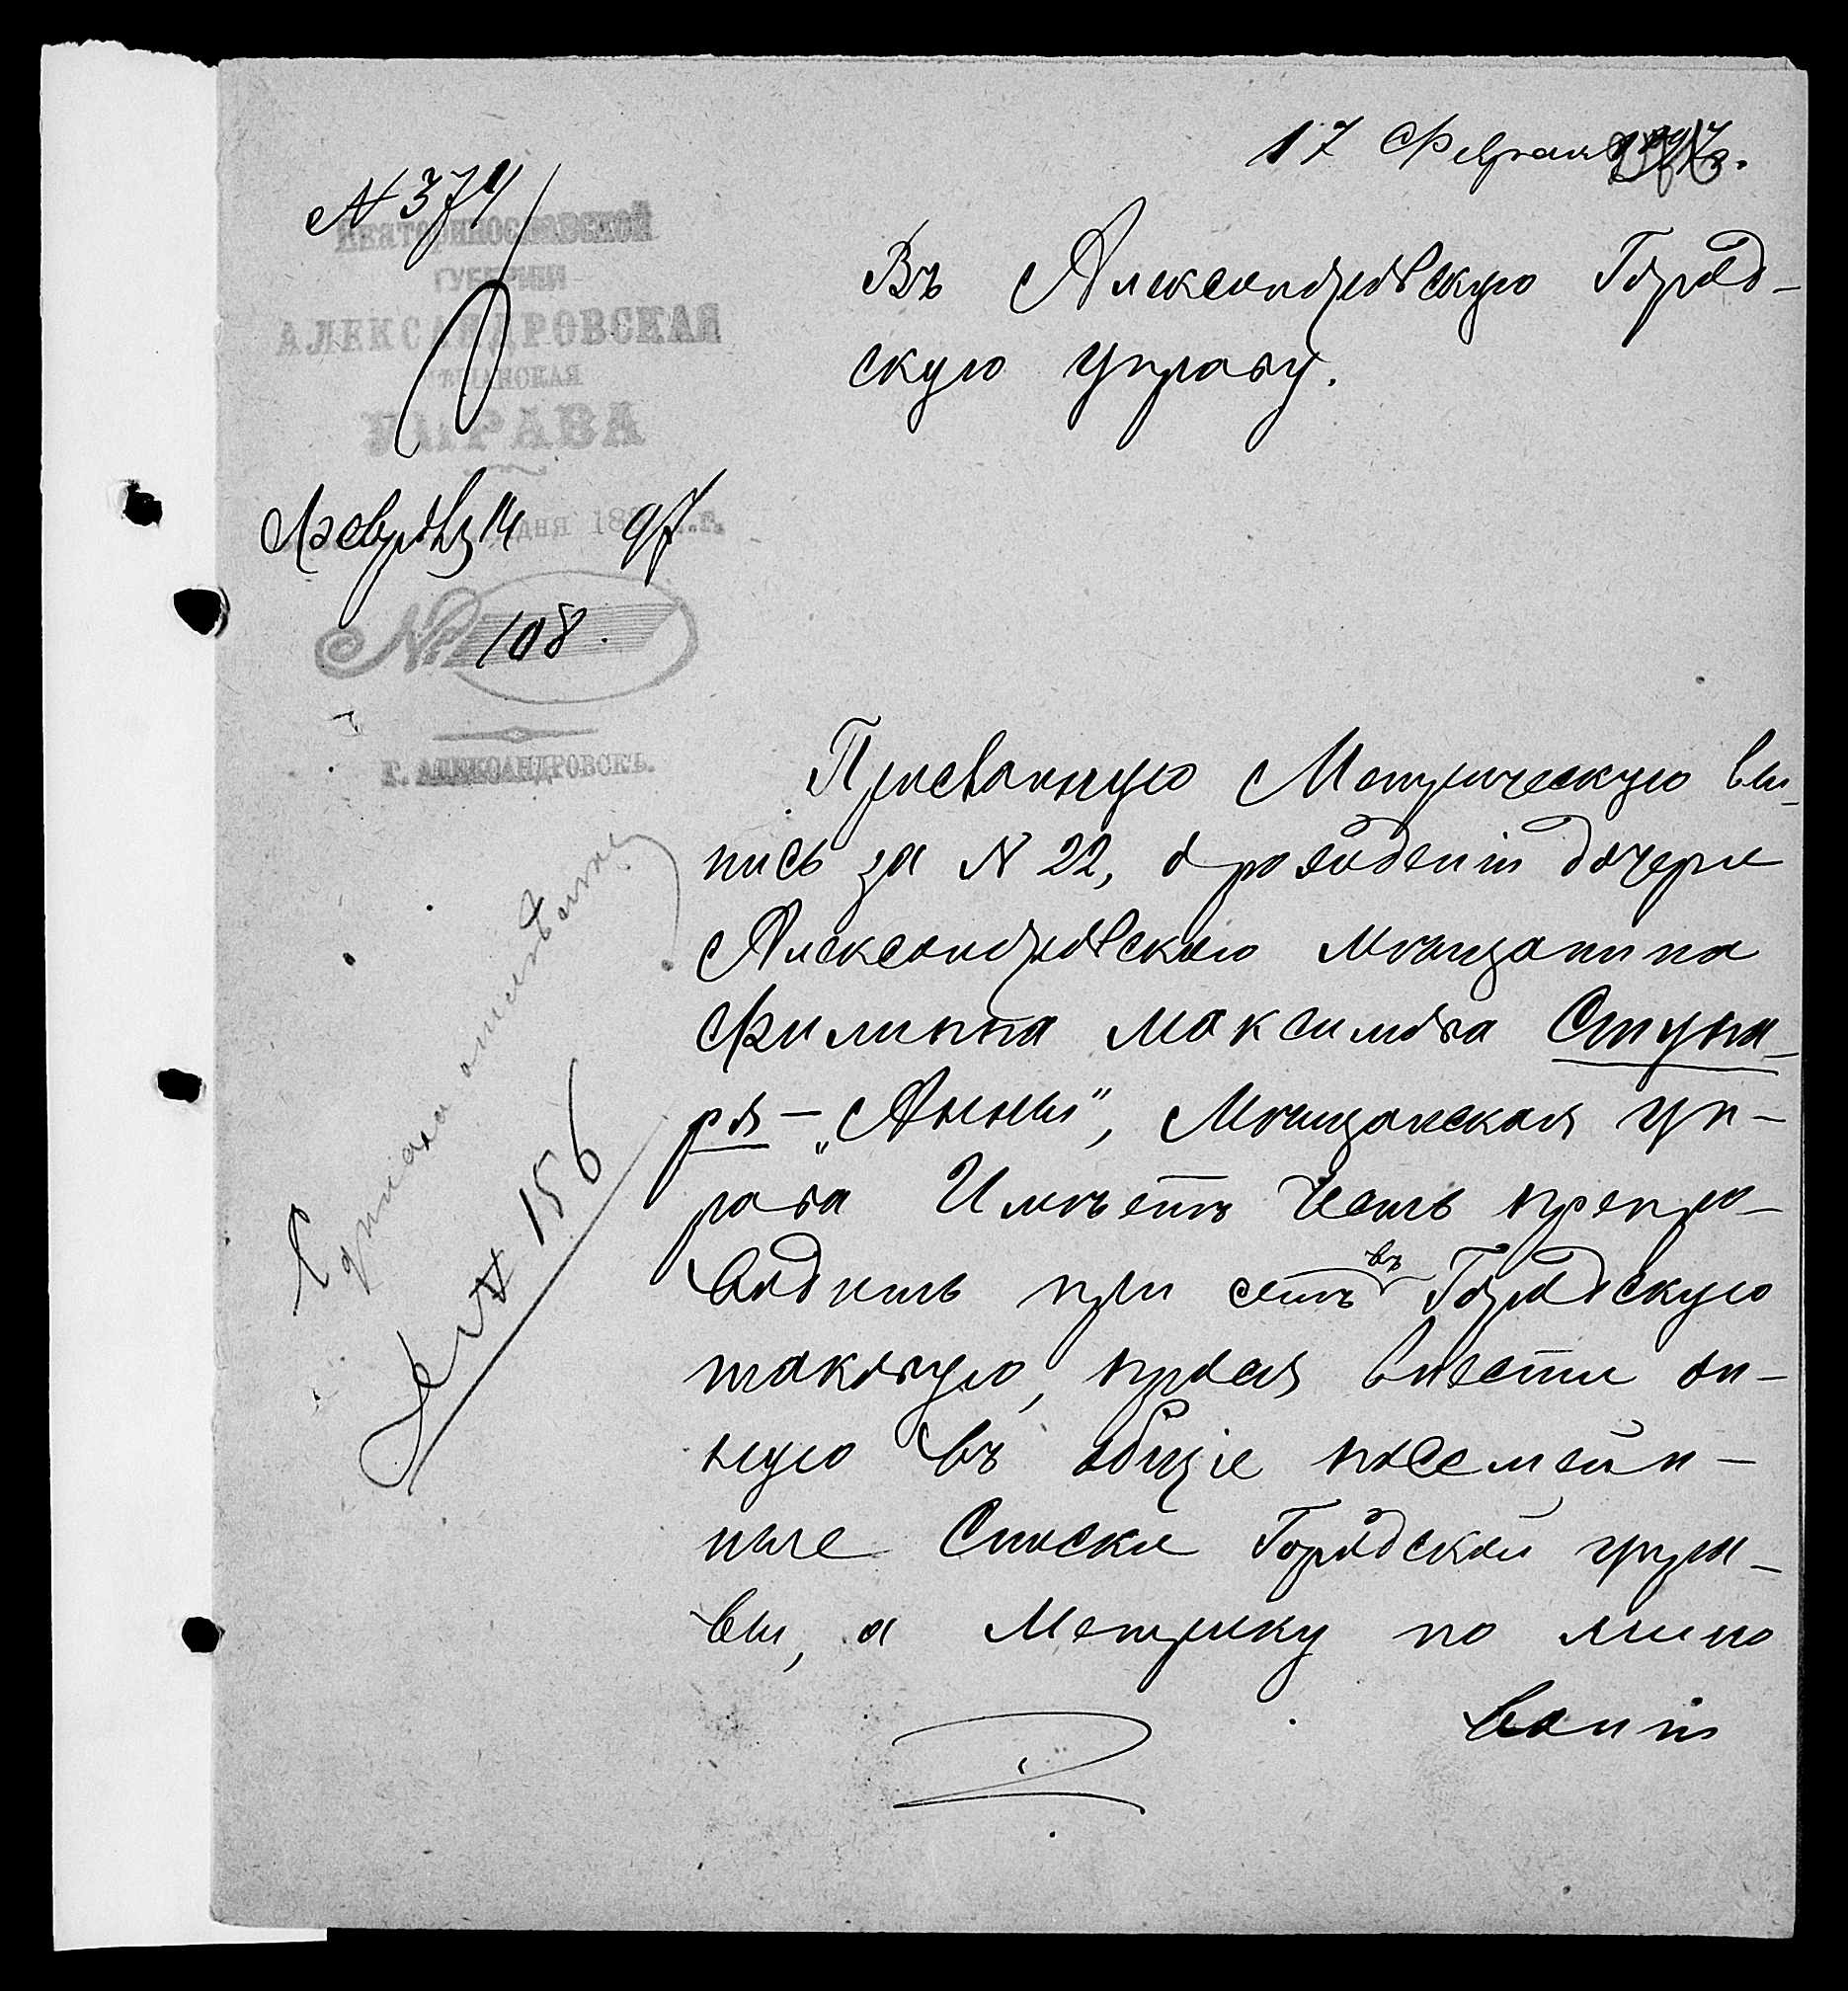 17 Февраля 1897 г.
№ 374
Екатеринославской
ГУБЕРНИИ
АЛЕКСАНДРОВСКАЯ
МѢЩАНСКАЯ
УПРАВА
Февраля 14 дня 1897 г.
№ 108.
Г. АЛЕКСАНДРОВСКЪ.
Въ Александровскую Город-
скую Управу.
Присланную Метрическую вы-
пись за № 22, о рождении дочери
Александровскаго мѣщанина
Филиппа Максимова Ступа-
ря – „Анны", Мѣщанская Уп-
рава Имѣетъ честь препро-
водить при семъ въ Городскую
таковую, прося внести он-
ную въ общіе посемейн-
ные Списки Городской управ-
вы, а Метрику по мино
ваніи
№ 156